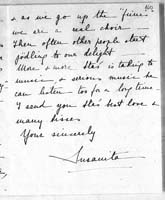 & as we go up the "funi"
we are a real choir —
then often other people start
yodling to our delight
More & more she's is taking to
music, & serious music he
can listen too for a long time
I send you his best love &
many kisses
Yours sincerely
Susanita